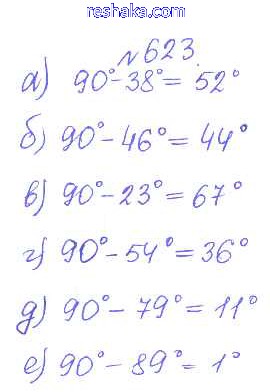 reshaka.com
№623.
а) 90°-38°= 52°
б) 90°-46°= 44°
в) 90°-23°= 67°
г) 90°-54°= 36°
д) 90°-79°= 11°
е) 90°-89°= 1°